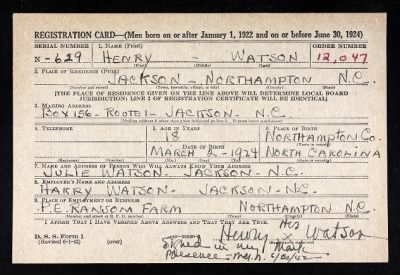 REGISTRATION CARD—(Men born on or after January 1, 1922 and on or before June 30, 1924)
SERIAL NUMBER 1. NAME (Print) ORDER NUMBER
N-629 HENRY - WATSON 12,047
(First) (Middle) (Last)
2. PLACE OF RESIDENCE (Print)
JACKSON - NORTHAMPTON N.C.
(Number and street) (Town, township, village, or city) (County) (State)
[THE PLACE OF RESIDENCE GIVEN ON THE LINE ABOVE WILL DETERMINE LOCAL BOARD
JURISDICTION; LINE 2 OF REGISTRATION CERTIFICATE WILL BE IDENTICAL]
3. MAILING ADDRESS
BOX 156 - ROUTE 1 - JACKSON - N.C.
[Mailing address if other than place indicated on line 2. If same, insert word same]
4. TELEPHONE 5. AGE IN YEARS 6. PLACE OF BIRTH
18 NORTHAMPTON CO.
DATE OF BIRTH (Town or county)
MARCH 2 - 1924 NORTH CAROLINA
(Exchange) (Number) (Mo.) (Day) (Yr.) (State or country)
7. NAME AND ADDRESS OF PERSON WHO WILL ALWAYS KNOW YOUR ADDRESS
JULIE WATSON - JACKSON - N.C.
8. EMPLOYER'S NAME AND ADDRESS
HARRY WATSON - JACKSON - N.C.
9. PLACE OF EMPLOYMENT OR BUSINESS
P.E. RANSOM FARM NORTHAMPTON N.C.
(Number and street or R. F. D. number) (Town) (County) (State)
I AFFIRM THAT I HAVE VERIFIED ABOVE ANSWERS AND THAT THEY ARE TRUE.
D. S. S. Form 1
(Revised 6-1-42)
His
Henry x Watson
Mark
Signed in my
presence